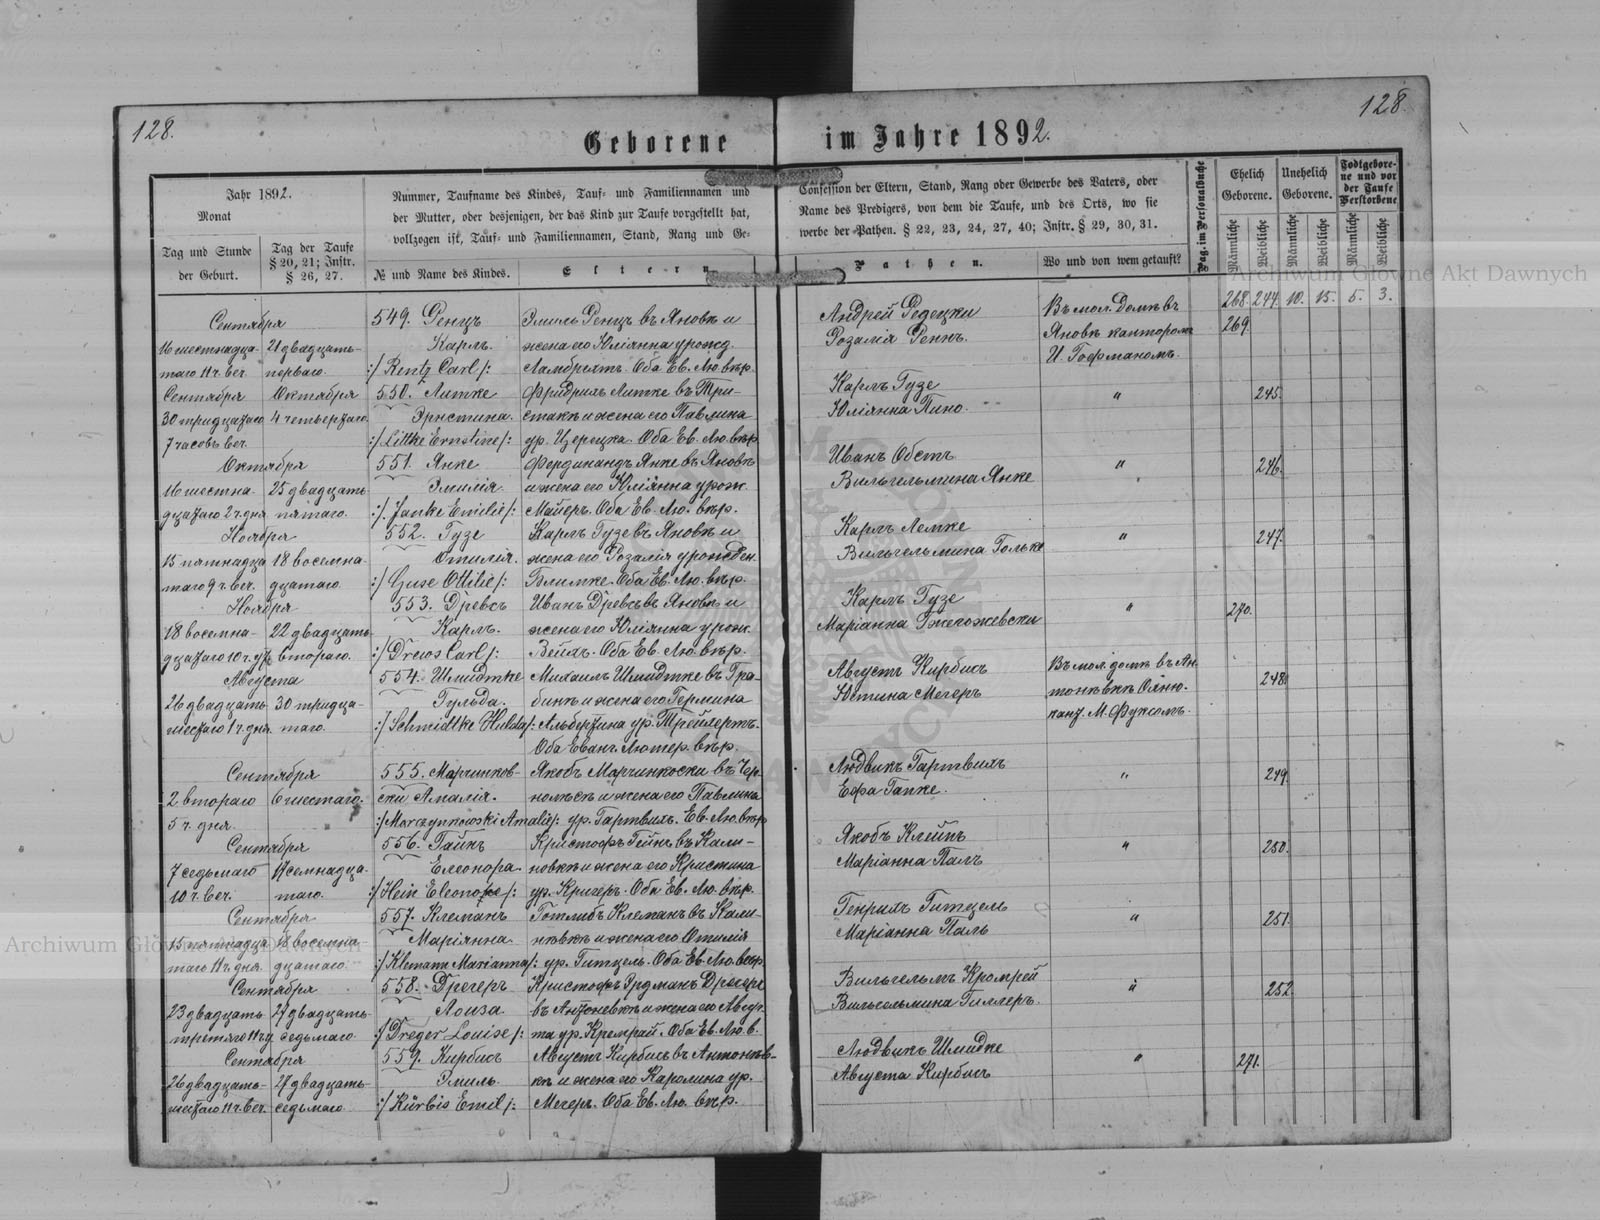 128.
128.
Geborene im Jahre 1892.
Jahr 1892.
Monat
Tag und Stunde
der Geburt.
Tag der Taufe
§ 20, 21; Instr.
§ 26, 27.
Nummer, Taufname des Kindes, Tauf- und Familiennamen und
der Mutter, oder desjenigen, der das Kind zur Taufe vorgestellt hat,
vollzogen ist, Tauf- und Familiennamen, Stand, Rang und Ge-
№ und Name des Kindes.
Eltern
Confession der Eltern, Stand, Rang oder Gewerbe des Vaters, oder
Name des Predigers, von dem die Taufe, und des Orts, wo sie
werbe der Pathen. § 22, 23, 24, 27, 40; Instr. § 29, 30, 31.
Pathen.
Wo und von wem getauft?
Pag. im Personalbuche
Ehelich
Geborene.
Unehelich
Geborene.
Todtgebore-
ne und vor
der Taufe
Verstorbene
Männliche
Weibliche
Männliche
Weibliche
Männliche
Weibliche
268. 244. 10. 15. 5. 3.
Сентября
16 шестнадца-
таго 11 ч. веч.
21 двадцать
перваго.
549. Ренцъ
Карлъ.
:/ Rentz Carl /:
Эмиль Ренцъ въ Яновкѣ и
жена его Юліянна урожд.
Ламбрехтъ. Оба Ев. Лю. вѣр.
Андрей Редецки
Розалія Реннъ.
Въ мол. Домѣ въ
Яновкѣ канторомъ
И. Гофманомъ.
269.
Сентября
30 тридцатаго
7 часовъ веч.
Октября
4 четвертаго.
550. Литке
Эрнстина.
:/ Littke Ernstine /:
Фридрихъ Литке въ Три-
стакѣ и жена его Павлина
ур. Церецка. Оба Ев. Лю. вѣр.
Карлъ Гузе
Юліянна Пино.
"
245.
Октября
16 шестна-
дцатаго 2 ч. дня
25 двадцать
пятаго.
551. Янке
Эмилія.
:/. Janke Emilie /:
Фердинандъ Янке въ Яновкѣ
и жена его Юліянна урож.
Майеръ. Оба Ев. Лю. вѣр.
Иванъ Обстъ
Вильгельмина Янке
"
246.
Ноября
15 пятнадца
таго 9 ч. веч.
18 восемна-
дцатаго.
552. Гузе
Отилія.
:/ Guse Ottilie /:
Карлъ Гузе въ Яновкѣ и
жена его Розалія урожден.
Блимке. Оба Ев. Лю. вѣр.
Карлъ Лемке
Вильгельмина Гольке
"
247.
Ноября
18 восемна-
дцатаго 10 ч. ут.
22 двадцать
втораго.
553. Древсъ
Карлъ.
:/ Drews Carl /:
Иванъ Древсъ въ Яновкѣ и
жена его Юліянна урож.
Вейхъ. Оба Ев. Лю. вѣр.
Карлъ Гузе
Маріанна Гжегожевски
"
270.
Августа
26 двадцать
шестаго 1 ч. дня
30 тридца-
таго.
554. Шмидтке
Гульда.
:/ Schmidtke Hulda /:
Михаилъ Шмидтке въ Гра-
бинѣ и жена его Термина
Альбертина ур. Трейлертъ.
Оба Еванг. Лютер. вѣр.
Августъ Кирбисъ
Юстина Мегеръ
Въ мол. домѣ въ Ан-
тонѣвкѣ
кант. М. Фуксомъ.
248.
Сентября
2 втораго
5 ч. дня.
6 шестаго.
555. Марчинков-
ски Амалія.
:/ Marczynkowski Amalie /:
Якобъ Марчинкоски въ Чер-
нолѣсѣ и жена его Павлина
ур. Гартвихъ. Ев. Лю. вѣр
Людвикъ Гартвихъ
Ефа Гапке.
"
249.
Сентября
7 седьмаго
10 ч. веч.
17 семнадца-
таго.
556. Гайнъ
Елеонора.
:/ Hein Eleonore /:
Кристофъ Гейнъ въ Кали-
новкѣ и жена его Кристина
ур. Кригеръ. Оба Ев. Лю. вѣр.
Якобъ Клейнъ
Маріанна Палъ
"
250.
Сентября
15 пятнадца
таго 11 ч. дня.
18 восемна-
дцатаго.
557. Клеманъ
Маріянна.
:/ Klemann Marianna /:
Готлибъ Клеманъ въ Кали-
нѣвкѣ и жена его Отилія
ур. Гитцель. Оба Ев. Лю. вѣр.
Генрихъ Гитцель
Маріанна Палъ
"
251.
Сентября
23 двадцать
третяго 11 ч. у
27 двадцать
седьмаго.
558. Дрегеръ
Лоиза.
:/ Dreger Louise /:
Кристофъ Эрдманъ Дрегеръ
въ Антоневкѣ и жена его Авгус
та ур. Кремрай. Оба Ев. Лю. в.
Вильгельмъ Кромрей
Вильгельмина Гиллеръ.
"
252.
Сентября
26 двадцать-
шестаго 11 ч. веч.
27 двадцать-
седьмаго.
559. Кирбисъ
Эмиль.
:/ Kürbis Emil /:
Августъ Кирбисъ въ Антонѣв-
кѣ и жена его Каролина ур.
Мегеръ. Оба Ев. Лю. вѣр.
Людвикъ Шмидке
Августа Кирбисъ
"
271.
Archiwum Główne Akt Dawnych
Archiwum Główne Akt Dawnych